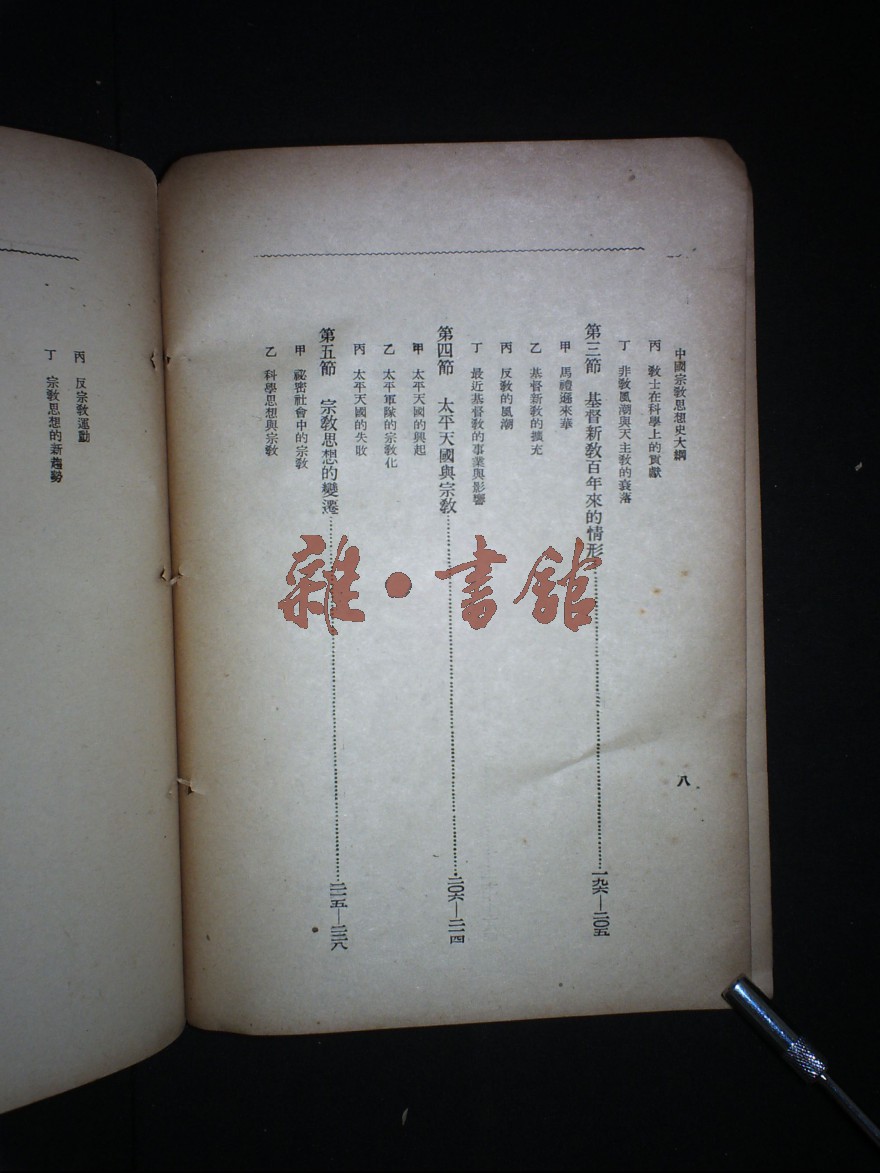 中國宗敎思想史大綱
八
丙 敎士在科學上的貢獻
丁 非敎風潮與天主敎的衰落
第三節 基督新敎百年來的情形……一九六—二〇五
甲 馬禮遜來華
乙 基督新敎的擴充
丙 反敎的風潮
丁 最近基督敎的事業與影響
第四節 太平天國與宗敎……二〇六—二一四
甲 太平天國的興起
乙 太平軍隊的宗敎化
丙 太平天國的失敗
第五節 宗敎思想的變遷……二一五—二二八
甲 祕密社會中的宗敎
乙 科學思想與宗敎
丙 反宗敎運動
丁 宗敎思想的新趨勢
雜·書館